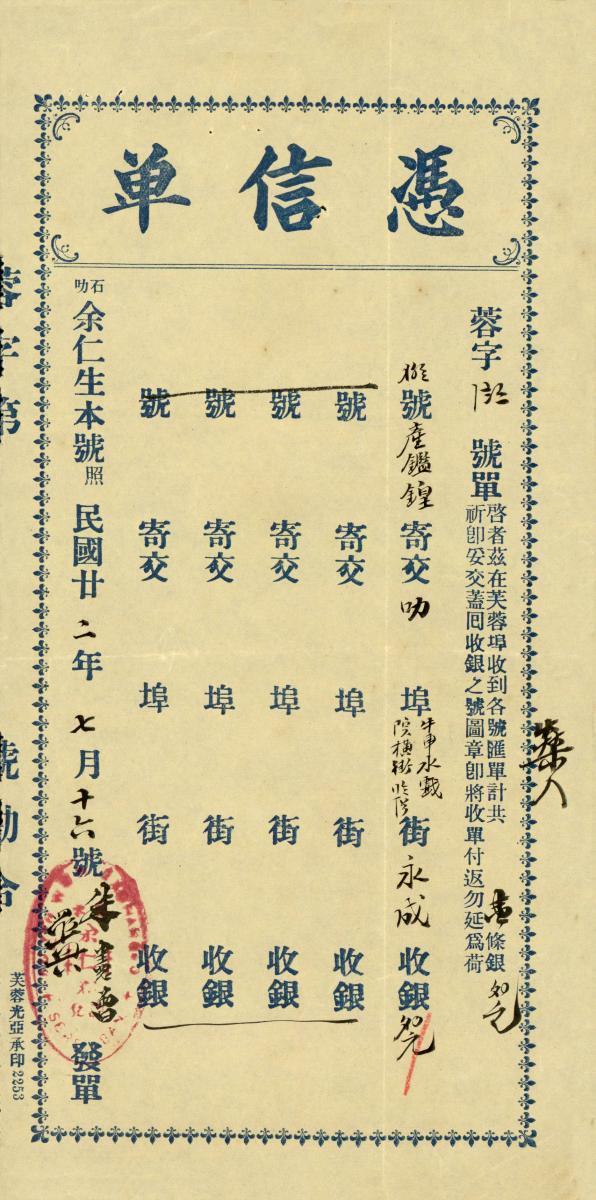 憑信单
蓉字 號單
啓者茲在芙蓉埠收到各號匯單計共 條銀
祈卽妥交蓋囘收銀之號圖章卽將收單付返勿延爲荷
號產鑑鍠寄交叻埠牛車水戲院橫街 街永成收銀
號 寄交 埠 街 收銀
號 寄交 埠 街 收銀
號 寄交 埠 街 收銀
號 寄交 埠 街 收銀
石叻余仁生本號照 民國廿二年七月十六號 發單
芙蓉光亞承印2253
蓉字第 號